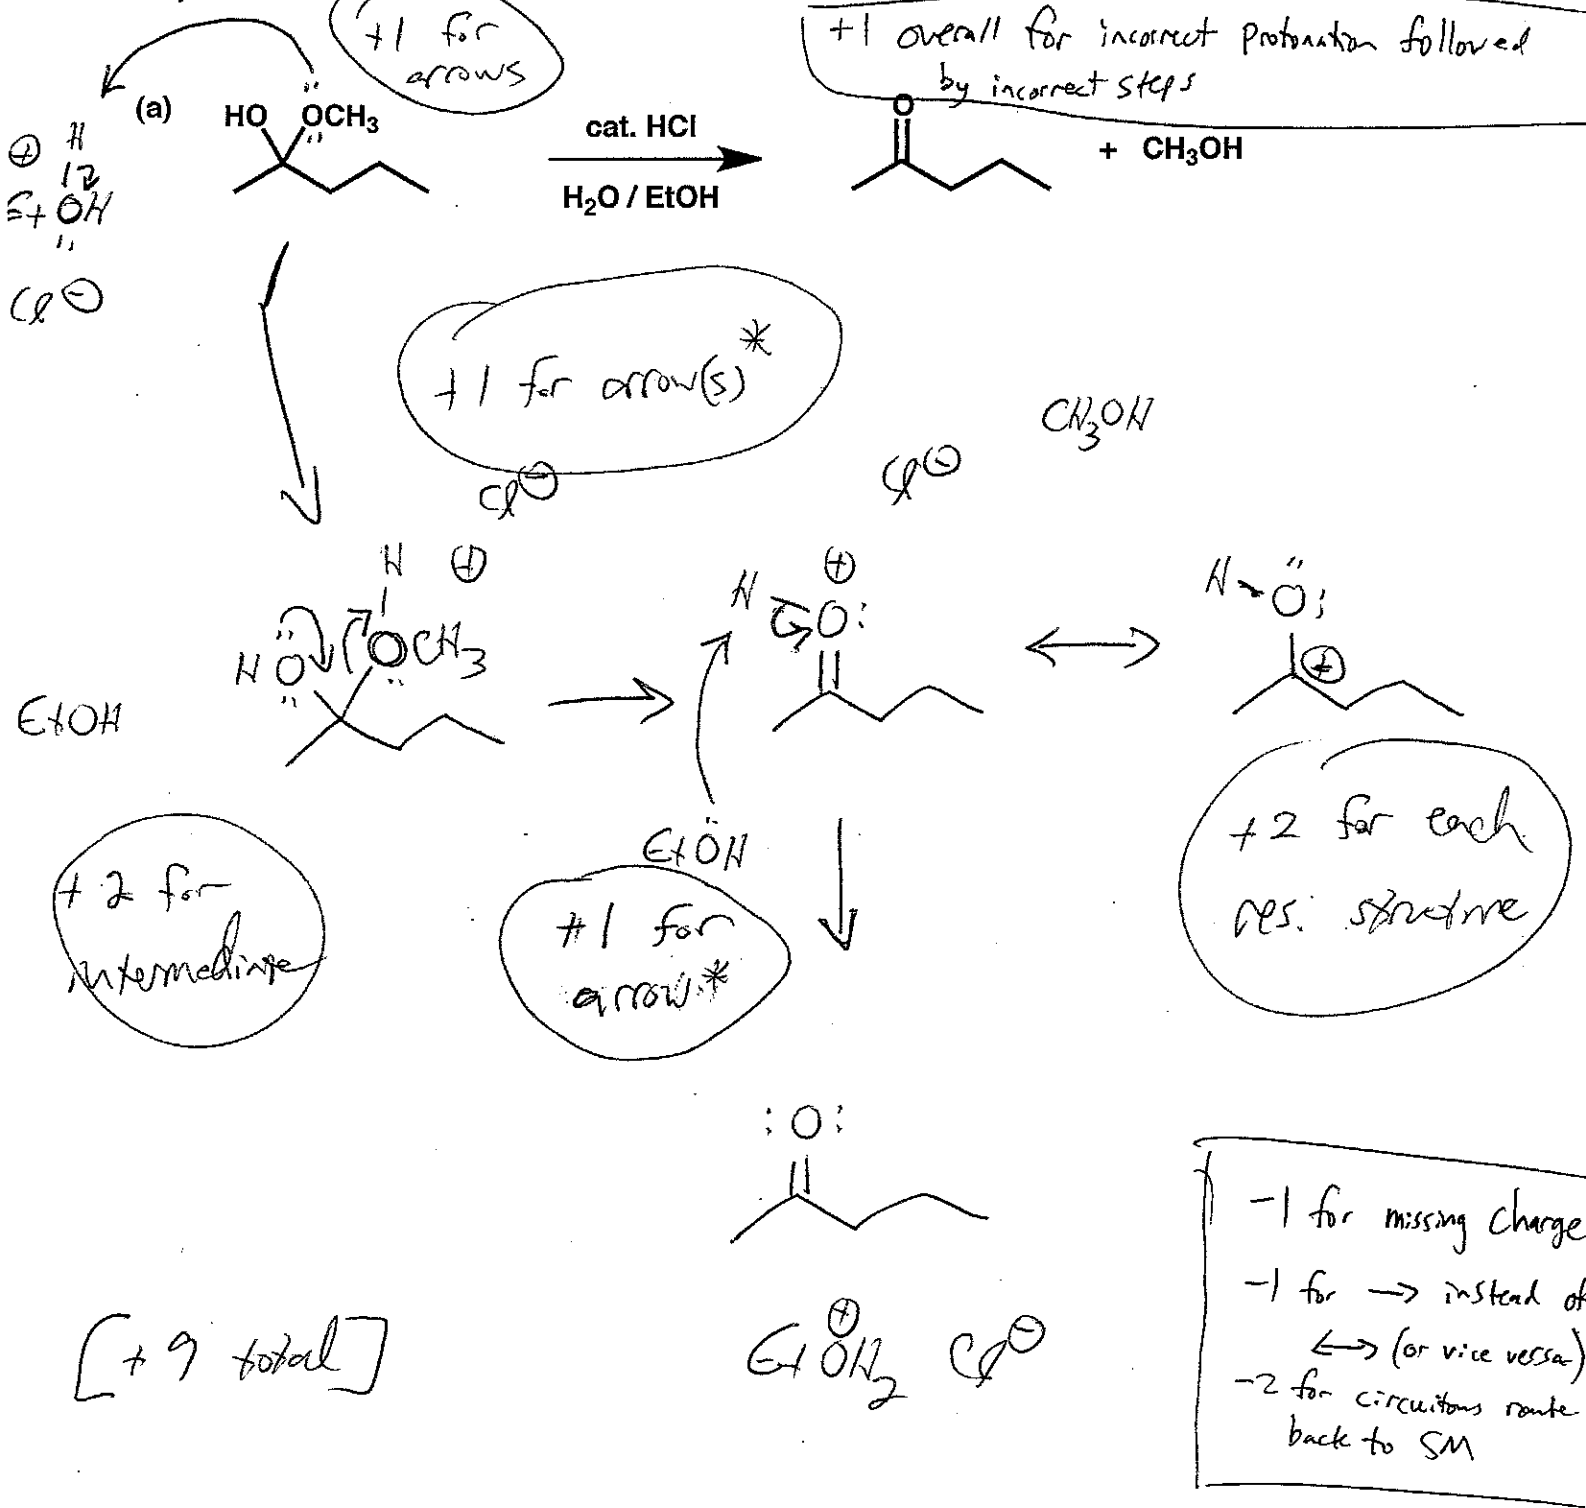 +1 for
arrows
+1 overall for incorrect protonation followed
by incorrect steps
(a)
HO
OCH3
cat. HCl
H2O / EtOH
O
+ CH3OH
⊕ H
EtOH
Cl⊖
+1 for arrow(s)*
Cl⊖
Cl⊖
CH3OH
H ⊕
HO
OCH3
EtOH
⊕
H
O:
H-O:
⊕
EtOH
+2 for
intermediate
+1 for
arrow*
+2 for each
res. structure
:O:
EtOH2 ⊕ Cl⊖
[+9 total]
-1 for missing charge
-1 for → instead of
↔ (or vice versa)
-2 for circuitous route
back to SM